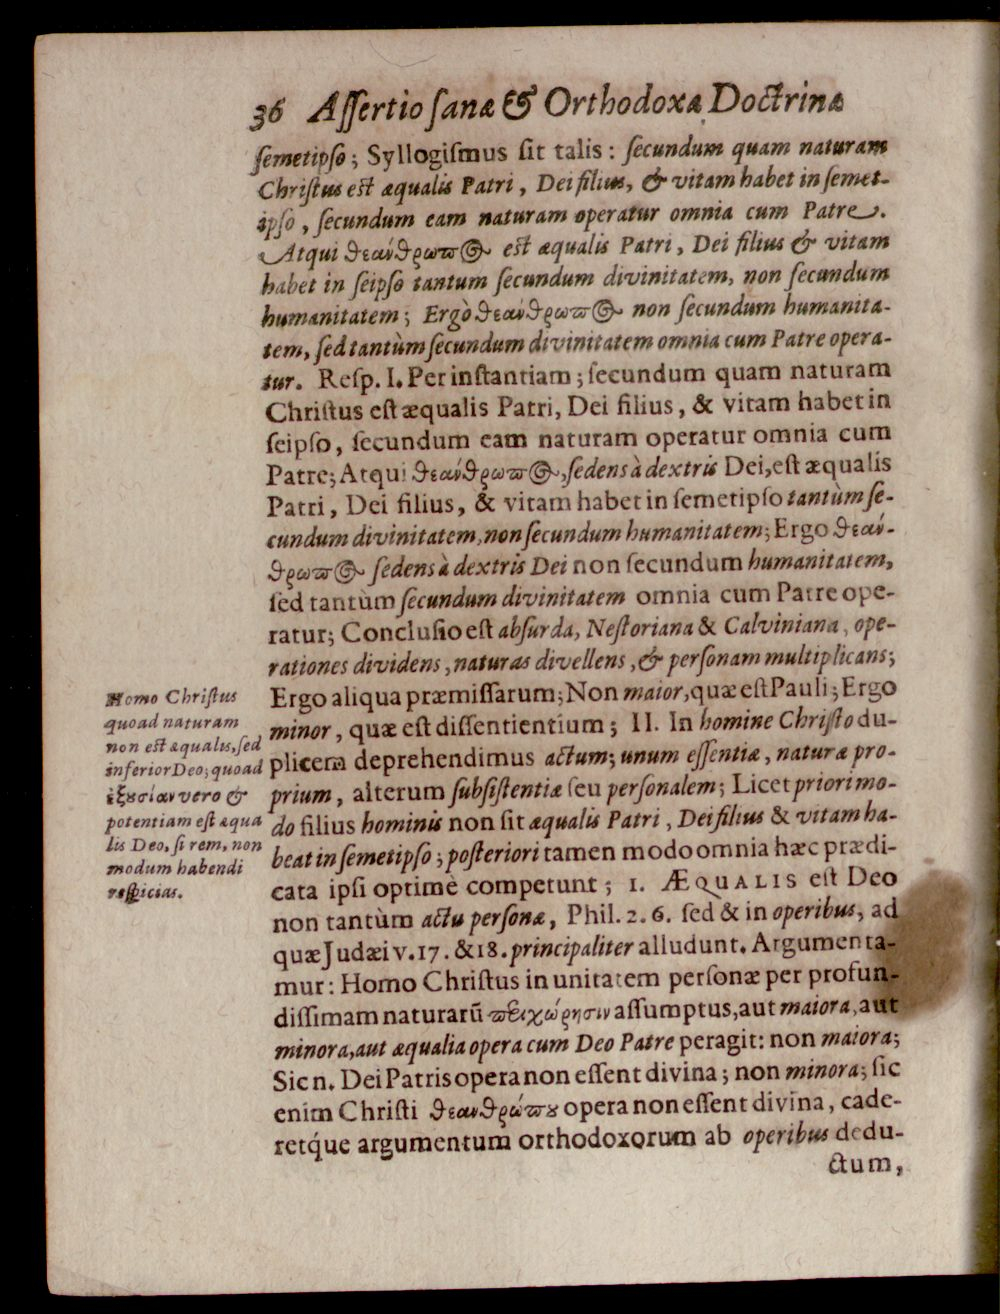 36 Aſſertio ſanæ & Orthodoxæ Doctrinæ
ſemetipſo; Syllogiſmus ſit talis: ſecundum quam naturam
Chriſtus est æqualis Patri, Dei filius, & vitam habet in ſemet-
ipſo, ſecundum eam naturam operatur omnia cum Patre.
Atqui θεάνθρωπος est æqualis Patri, Dei filius & vitam
habet in ſeipſo tantum ſecundum divinitatem, non ſecundum
humanitatem; Ergò θεάνθρωπος non ſecundum humanita-
tem, ſed tantùm ſecundum divinitatem omnia cum Patre opera-
tur. Reſp. I. Per inſtantiam; ſecundum quam naturam
Chriſtus eſt æqualis Patri, Dei filius, & vitam habet in
ſeipſo, ſecundum eam naturam operatur omnia cum
Patre; Atqui θεάνθρωπος, ſedens à dextris Dei, eſt æqualis
Patri, Dei filius, & vitam habet in ſemetipſo tantùm ſe-
cundum divinitatem, non ſecundum humanitatem; Ergo θεάν-
θρωπος ſedens à dextris Dei non ſecundum humanitatem,
ſed tantùm ſecundum divinitatem omnia cum Patre ope-
ratur; Concluſio eſt abſurda, Neſtoriana & Calviniana, ope-
rationes dividens, naturas divellens, & perſonam multiplicans;
Ergo aliqua præmiſſarum; Non maior, quæ eſt Pauli; Ergo
minor, quæ eſt diſſentientium; II. In homine Chriſto du-
plicem deprehendimus actum; unum eſſentiæ, naturæ pro-
prium, alterum ſubſiſtentiæ ſeu perſonalem; Licet priori mo-
do filius hominis non ſit æqualis Patri, Dei filius & vitam ha-
beat in ſemetipſo; poſteriori tamen modo omnia hæc prædi-
cata ipſi optimè competunt; 1. ÆQUALIS eſt Deo
non tantùm actu perſonæ, Phil. 2. 6. ſed & in operibus, ad
quæ Judæi v. 17. & 18. principaliter alludunt. Argumenta-
mur: Homo Chriſtus in unitatem perſonæ per profun-
diſſimam naturarũ περιχώρησιν aſſumptus, aut maiora, aut
minora, aut æqualia opera cum Deo Patre peragit: non maiora;
Sic n. Dei Patris opera non eſſent divina; non minora; ſic
enim Chriſti θεανθρώπου opera non eſſent divina, cade-
retq́ue argumentum orthodoxorum ab operibus dedu-
ctum,
Homo Chriſtus
quoad naturam
non est æqualis, ſed
inferior Deo; quoad
ἐξουσίαν vero &
potentiam eſt æqua
lis Deo, ſi rem, non
modum habendi
reſpicias.